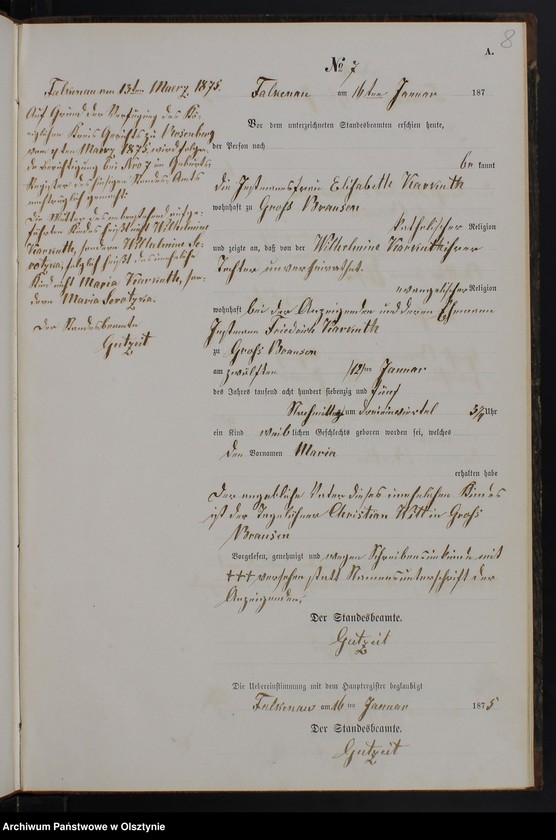 8
A.
No 7
Falkenau am 16ten Januar 187
Vor dem unterzeichneten Standesbeamten erschien heute,
der Person nach
be kannt
die Instmannsfrau Elisabeth Karwath
wohnhaft zu Groß Bransen
katholischer Religion
und zeigte an, daß von der Wilhelmine ihrer
Tochter unverheirathet.
evangelischer Religion
wohnhaft bei der Anzeigenden und deren Ehemann
Instmann Friedrich
zu Groß Bransen
am zwölften /12/ten Januar
des Jahres tausend acht hundert siebenzig und fünf
Nachmittags um dreieinviertel 3¼ Uhr
ein Kind weib lichen Geschlechts geboren worden sei, welches
den Vornamen Maria
erhalten habe
Der angebliche Vater dieses unehelichen Kindes
ist der Tagelöhner Christian Witt in Groß
Bransen
Vorgelesen, genehmigt und wegen Schreibensunkunde mit
+++ versehen statt Namensunterschrift der
Anzeigenden.
Der Standesbeamte.
Gutzeit
Die Uebereinstimmung mit dem Hauptregister beglaubigt
Falkenau am 16 ten Januar 1875
Der Standesbeamte.
Gutzeit
Falkenau am 13ten Maerz 1875.
Auf Grund der Verfügung des Kö-
niglichen Kreis Gerichts zu Rosenberg
vom ten Maerz 1875 wird folgen-
de Berichtigung bei Nro 7 im Geburts-
Register des hiesigen Standes Amts
nachträglich gemacht:
Die Mutter des umstehend aufge-
führten Kindes heißt nicht Wilhelmine
sondern Wilhelmine
folglich heißt das uneheliche
Kind nicht Maria son-
dern Maria
Der Standesbeamte
Gutzeit
Archiwum Państwowe w Olsztynie